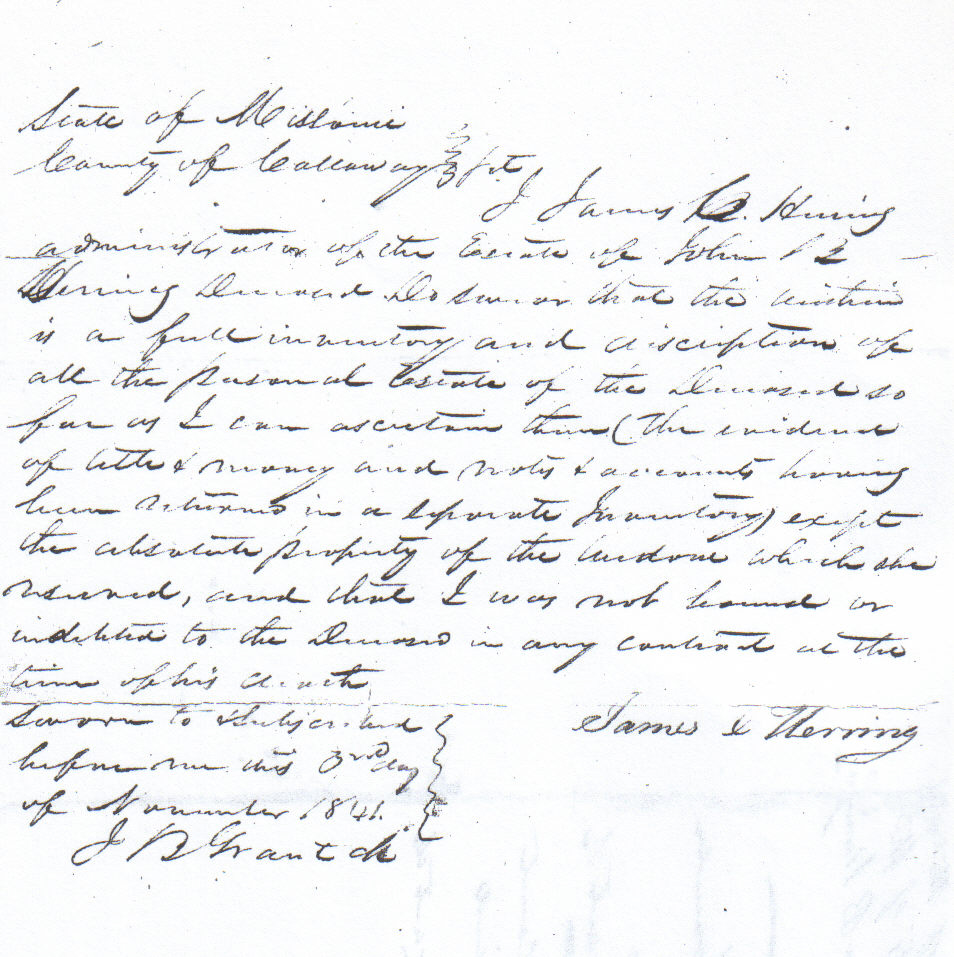 State of Missouri
County of Callaway } Sct
I James C. Herring
administrator of the Estate of John B
Herring Deceased Do swear that the within
is a full inventory and discription of
all the personal Estate of the Deceased so
far as I can ascertain them (the evidence
of title & money and notes & accounts having
been returned in a seperate Inventory) except
the absolute property of the widow which she
reserved, and that I was not bound or
indebted to the Deceased in any contract at the
time of his death
Sworn to & Subscribed
before me this 3rd day
of November 1841.
J B Grant clk
James Herring